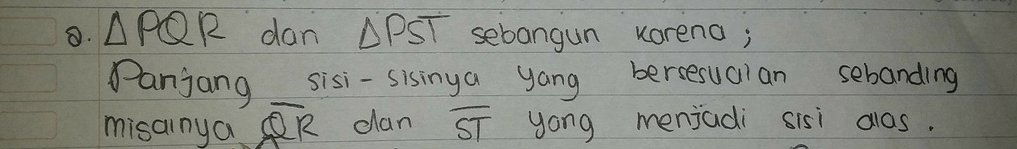 a. △PQR dan △PST sebangun karena ;
Panjang sisi - sisinya yang bersesuaian sebanding
misalnya Q̅R̅ dan S̅T̅ yang menjadi sisi alas .